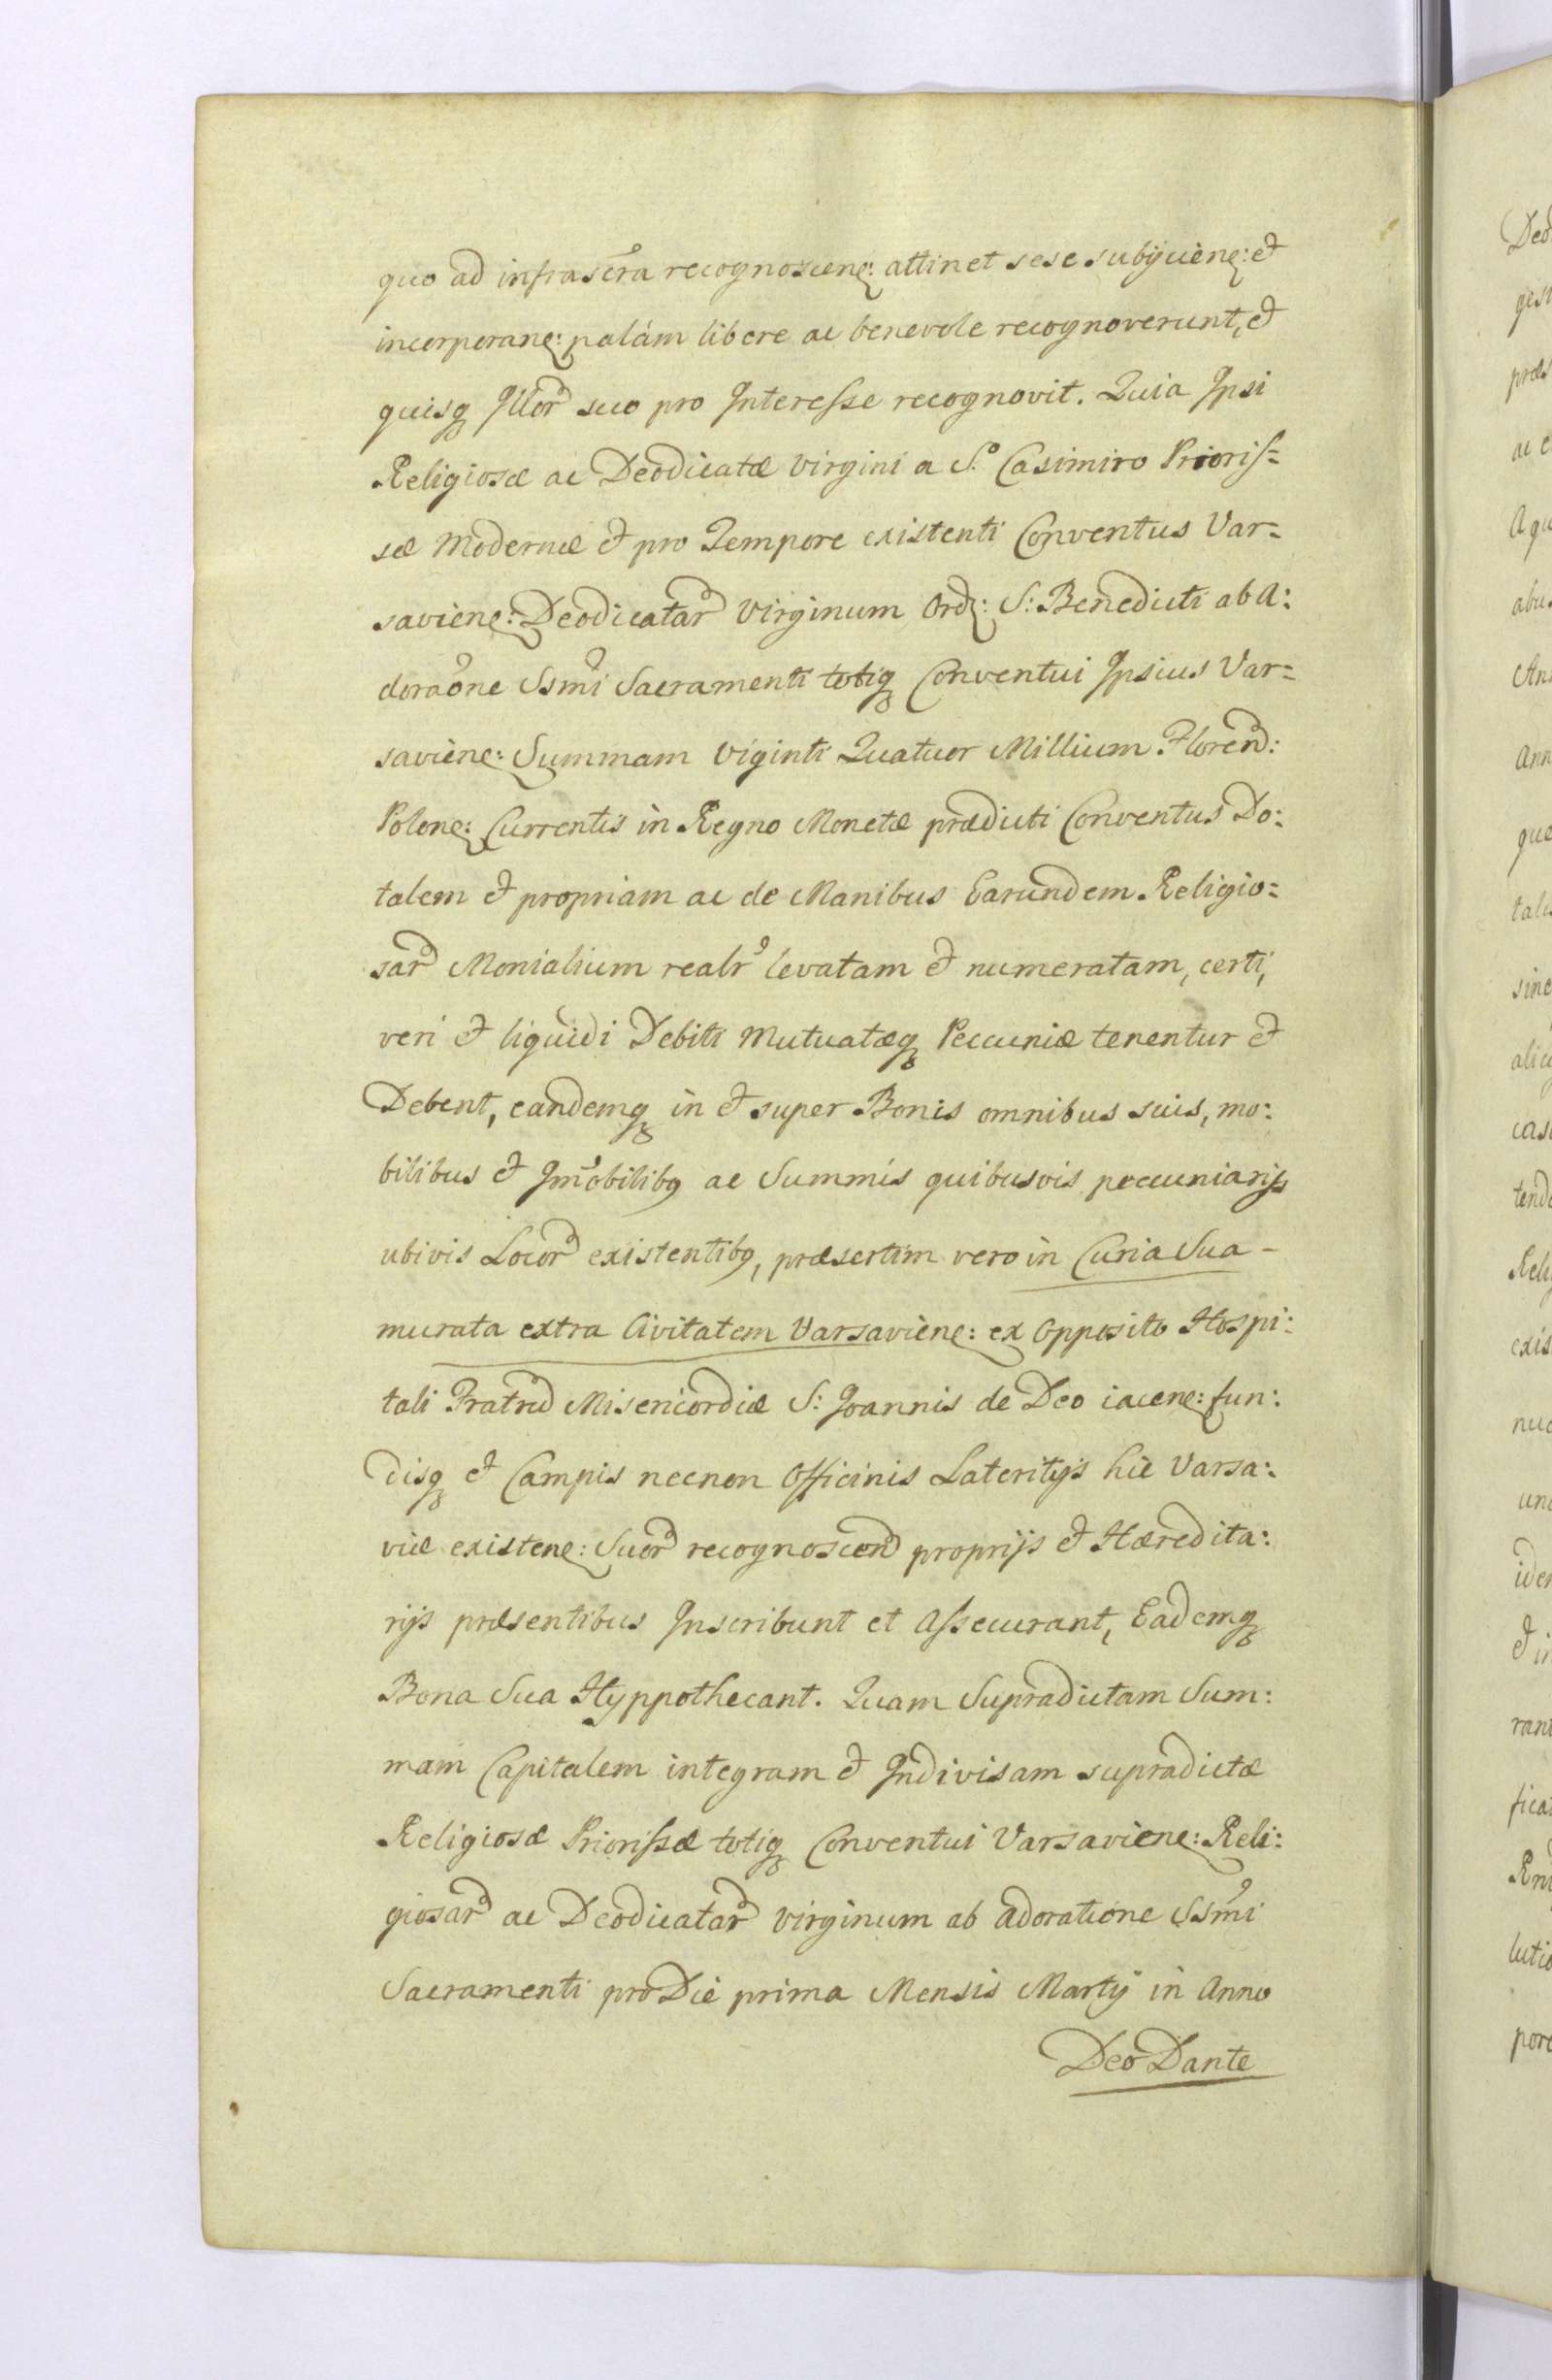 quo ad infrascr̃a recognoscen: attinet sese subijcien: et
incorporan: palám libere ac benevole recognoverunt, et
quisq Illor suo pro Interesse recognovit. Quia Ipsi
Religiosæ ac Deodicatæ Virgini a S.º Casimiro Prioris=
sæ Modernæ et pro Tempore existenti Conventus Var=
savien: Deodicatar Virginum Ord: S: Benedicti ab A:
doraõne Ssmi Sacramenti totiq Conventui Ipsius Var=
savien: Summam Viginti Quatuor Millium Floren:
Polon: Currentis in Regno Monetæ prædicti Conventus Do:
talem et propriam ac de Manibus Earundem Religio:
sar Monialium realr levatam et numeratam, certi,
veri et liquidi Debiti Mutuatæq Peccuniæ tenentur et
Debent, eandemq in et super Bonis omnibus suis, mo:
bilibus et Im̃obilibq ac Summis quibusvis peccuniarijs
ubivis Locor existentibq, præsertim vero in Curia Sua -
murata extra Civitatem Varsavien: ex Opposito Hospi:
tali Fratru Misericordiæ S: Joannis de Deo iacen: fun:
disq et Campis necnon Officinis Lateritijs hic Varsa:
viæ existen: Suor recognoscen proprijs et Hæredita:
rijs præsentibus Inscribunt et Assecurant, Eademq
Bona Sua Hyppothecant. Quam Supradictam Sum:
mam Capitalem integram et Indivisam supradictæ
Religiosæ Priorissæ totiq Conventui Varsavien: Reli:
giosar ac Deodicatar Virginum ab Adoratione Ssmi
Sacramenti pro Die prima Mensis Martij in Anno
Deo Dante